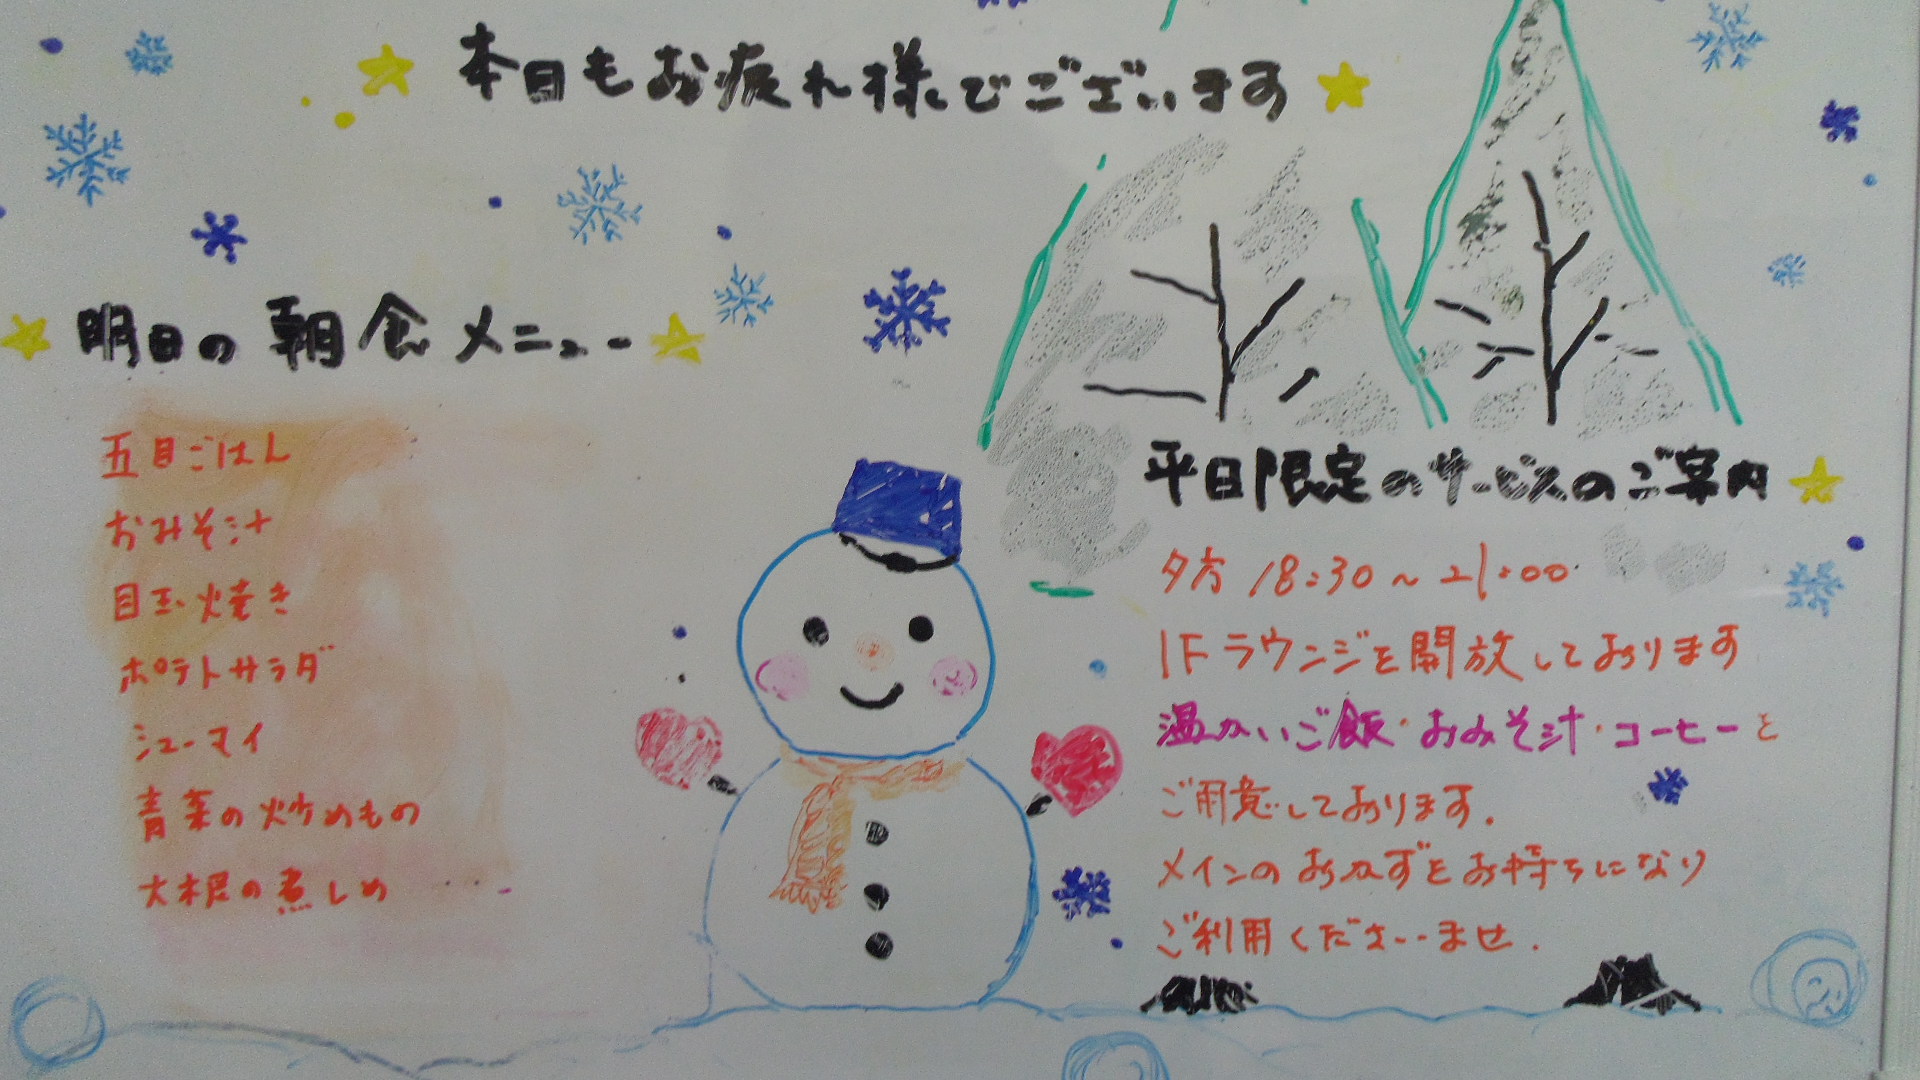 本日もお疲れ様でございます
明日の朝食メニュー
五目ごはん
おみそ汁
目玉焼き
ポテトサラダ
シューマイ
青菜の炒めもの
大根の煮しめ
平日限定のサービスのご案内
夕方 18:30～21:00
1Fラウンジを開放しております
温かいご飯・おみそ汁・コーヒーと
ご用意しております.
メインのおかずをお持ちになり
ご利用くださいませ.